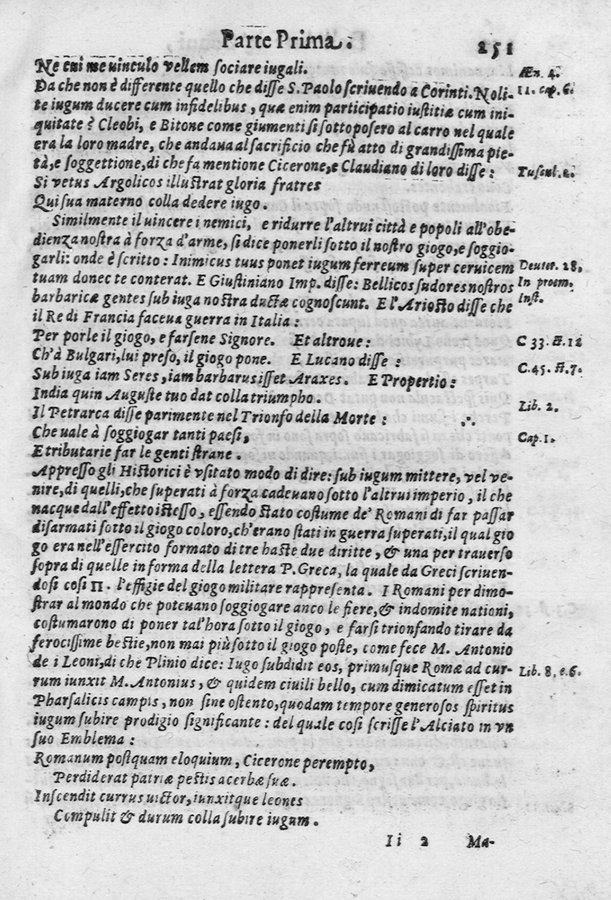 Parte Prima. 251
Ne cui me vinculo vellem sociare iugali. Æn. 4.
Da che non è differente quello che disse S. Paolo scriuendo a Corinti. Noli- 11. cap. 6.
te iugum ducere cum infidelibus, quæ enim participatio iustitiæ cum ini-
quitate? Cleobi, e Bitone come giumenti si sottoposero al carro nel quale
era la loro madre, che andaua al sacrificio che fù atto di grandissima pie-
tà, e soggettione, di che fa mentione Cicerone, e Claudiano di loro disse: Tuscul. 1.
Si vetus Argolicos illustrat gloria fratres
Qui sua materno colla dedere iugo.
Similmente il uincere i nemici, e ridurre l'altrui città e popoli all'obe-
dienza nostra à forza d'arme, si dice ponerli sotto il nostro giogo, e soggio-
garli: onde è scritto: Inimicus tuus ponet iugum ferreum super ceruicem Deuter. 28.
tuam donec te conterat. E Giustiniano Imp. disse: Bellicos sudores nostros In proem.
barbaricæ gentes sub iuga nostra ductæ cognoscunt. E l'Ariosto disse che Inst.
il Re di Francia faceua guerra in Italia:
Per porle il giogo, e farsene Signore. Et altroue: C 33. st. 12
Ch'à Bulgari, lui preso, il giogo pone. E Lucano disse: C. 45. st. 7.
Sub iuga iam Seres, iam barbarus isset Araxes. E Propertio:
India quin Auguste tuo dat colla triumpho. Lib. 2.
Il Petrarca disse parimente nel Trionfo della Morte: ∴
Che uale à soggiogar tanti paesi, Cap. 1.
E tributarie far le genti strane.
Appresso gli Historici è vsitato modo di dire: sub iugum mittere, vel ve-
nire, di quelli, che superati à forza cadeuano sotto l'altrui imperio, il che
nacque dall'effetto istesso, essendo stato costume de' Romani di far passar
disarmati sotto il giogo coloro, ch'erano stati in guerra superati, il qual gio
go era nell'essercito formato di tre haste due diritte, & una per trauerso
sopra di quelle in forma della lettera P. Greca, la quale da Greci scriuen-
dosi cosi Π. l'effigie del giogo militare rappresenta. I Romani per dimo-
strar al mondo che poteuano soggiogare anco le fiere, & indomite nationi,
costumarono di poner tal'hora sotto il giogo, e farsi trionfando tirare da
ferocissime bestie, non mai più sotto il giogo poste, come fece M. Antonio
de i Leoni, di che Plinio dice: Iugo subdidit eos, primusque Romæ ad cur- Lib. 8, c. 6.
rum iunxit M. Antonius, & quidem ciuili bello, cum dimicatum esset in
Pharsalicis campis, non sine ostento, quodam tempore generosos spiritus
iugum subire prodigio significante: del quale cosi scrisse l'Alciato in vn
suo Emblema:
Romanum postquam eloquium, Cicerone perempto,
Perdiderat patriæ pestis acerbæ suæ.
Inscendit currus uictor, iunxitque leones
Compulit & durum colla subire iugum.
Ii 2 Ma-